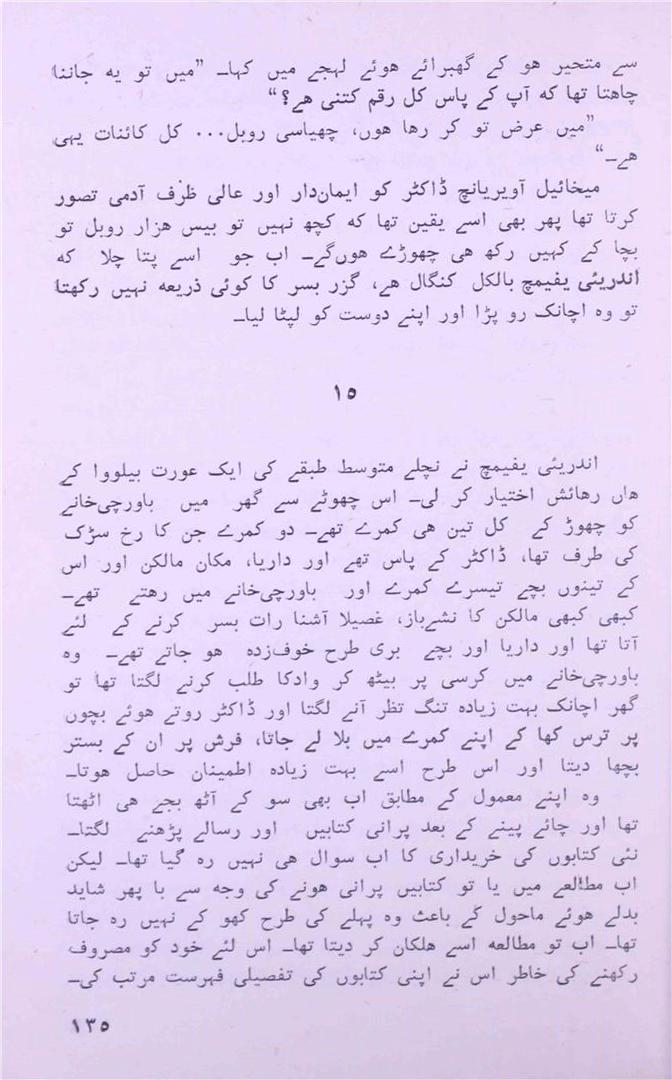 سے متحیر ھو کے گھبرائے ھوئے لہجے میں کہا۔ ”میں تو یہ جاننا
چاھتا تھا کہ آپ کے پاس کل رقم کتنی ھے؟“
”میں عرض تو کر رھا ھوں، چھیاسی روبل... کل کائنات یہی
ھے۔“
میخائیل آویریانچ ڈاکٹر کو ایماندار اور عالی ظرف آدمی تصور
کرتا تھا پھر بھی اسے یقین تھا کہ کچھ نہیں تو بیس ھزار روبل تو
بچا کے کہیں رکھ ھی چھوڑے ھوںگے۔ اب جو اسے پتا چلا کہ
اندریئی یفیمچ بالکل کنگال ھے، گزر بسر کا کوئی ذریعہ نہیں رکھتا
تو وہ اچانک رو پڑا اور اپنے دوست کو لپٹا لیا۔
۱۵
اندریئی یفیمچ نے نچلے متوسط طبقے کی ایک عورت بیلووا کے
ھاں رھائش اختیار کر لی۔ اس چھوٹے سے گھر میں باورچیخانے
کو چھوڑ کے کل تین ھی کمرے تھے۔ دو کمرے جن کا رخ سڑک
کی طرف تھا، ڈاکٹر کے پاس تھے اور داریا، مکان مالکن اور اس
کے تینوں بچے تیسرے کمرے اور باورچیخانے میں رھتے تھے۔
کبھی کبھی مالکن کا نشےباز، غصیلا آشنا رات بسر کرنے کے لئے
آتا تھا اور داریا اور بچے بری طرح خوفزدہ ھو جاتے تھے۔ وہ
باورچیخانے میں کرسی پر بیٹھ کر وادکا طلب کرنے لگتا تھا تو
گھر اچانک بہت زیادہ تنگ نظر آنے لگتا اور ڈاکٹر روتے ھوئے بچوں
پر ترس کھا کے اپنے کمرے میں بلا لے جاتا، فرش پر ان کے بستر
بچھا دیتا اور اس طرح اسے بہت زیادہ اطمینان حاصل ھوتا۔
وہ اپنے معمول کے مطابق اب بھی سو کے آٹھ بجے ھی اٹھتا
تھا اور چائے پینے کے بعد پرانی کتابیں اور رسالے پڑھنے لگتا۔
نئی کتابوں کی خریداری کا اب سوال ھی نہیں رہ گیا تھا۔ لیکن
اب مطالعے میں یا تو کتابیں پرانی ھونے کی وجہ سے یا پھر شاید
بدلے ھوئے ماحول کے باعث وہ پہلے کی طرح کھو کے نہیں رہ جاتا
تھا۔ اب تو مطالعہ اسے ھلکان کر دیتا تھا۔ اس لئے خود کو مصروف
رکھنے کی خاطر اس نے اپنی کتابوں کی تفصیلی فہرست مرتب کی۔
۱۳۵